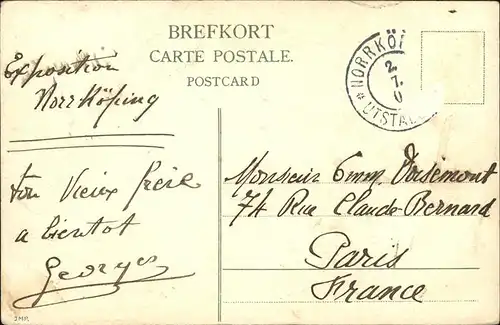 BREFKORT
CARTE POSTALE.
POSTCARD
NORRKÖ
2.
7.
0
* UTSTAL
Exposition
Norrköping
ton Vieux frère
a bientot
Georges
Monsieur Emm.
74 Rue Claude-Bernard
Paris
France